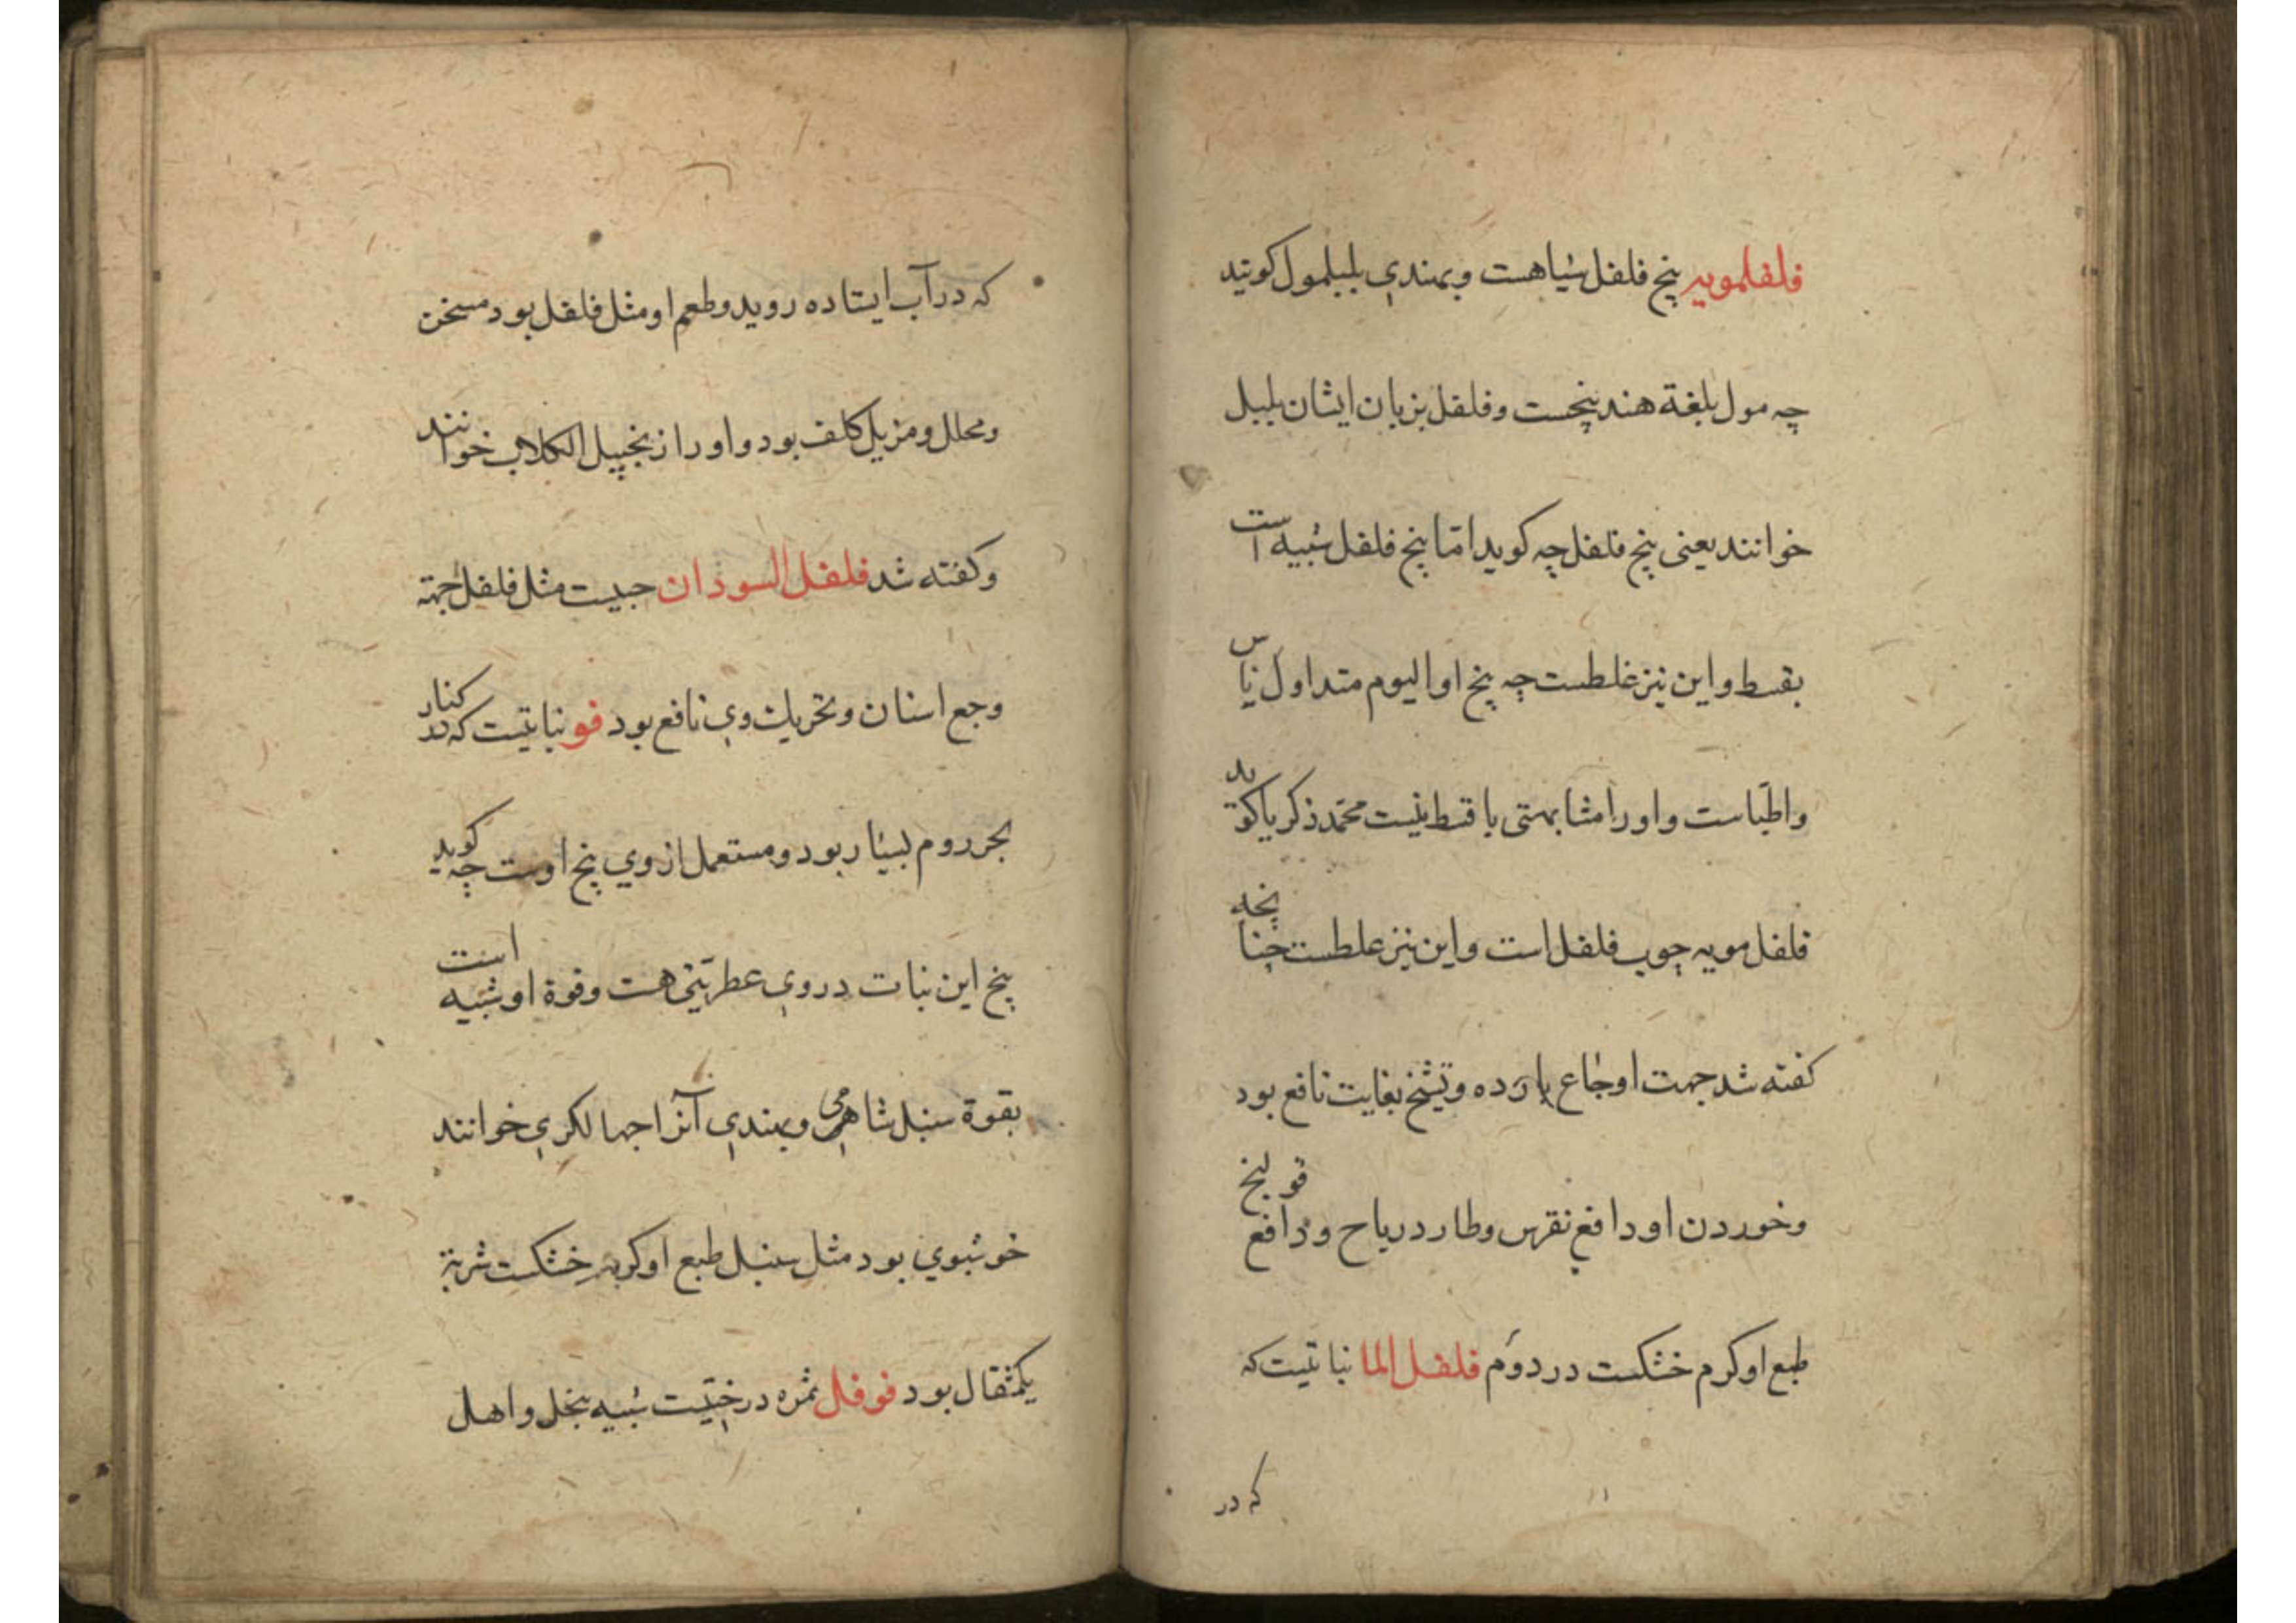 فلفلمویه بیخ فلفل سیاهست و بهندی بلبلمول کویند
چه مول بلغة هند بیخست و فلفل بزبان ایشان بلبل
خوانند یعنی بیخ فلفل چه کوید اما بیخ فلفل شبیه است
بقسط و این نیز غلطست چه بیخ او الیوم متداول ناس
و اطباست و او را مشابهتی با قسط نیست محمد زکریا کوید
فلفل مویه چوب فلفل است و این نیز غلطست چنانچه
کفته شد جهت اوجاع بارده و تشنج بغایت نافع بود
و خوردن او دافع نقرس و طارد ریاح و دافع قولنج
طبع او کرم خشکست در دوم فلفل الما نباتیست که
که در
که در آب ایستاده روید و طعم او مثل فلفل بود مسخن
و محلل و مزیل کلف بود و او را زنجبیل الکلاب خوانند
و کفته شد فلفل السودان حبیست مثل فلفل جهته
وجع اسنان و تحریك وی نافع بود فو نباتیست که در کنار
بحر روم بسیار بود و مستعمل از وی بیخ اوست چه کوید
بیخ این نبات در وی عطریتی هست و قوة او شبیه است
بقوة سنبل شامی و بهندی آنرا جهالکری خوانند
خوشبوی بود مثل سنبل طبع او کرم خشکست شربة
یکمثقال بود فوفل ثمره درختیست شبیه بنخل و اهل